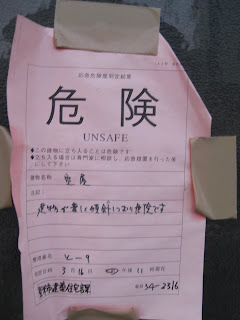 応急危険度判定結果
危険
UNSAFE
◆この建物に立ち入ることは危険です
◆立ち入る場合は専門家に相談し、応急措置を行った後
にして下さい
建物名称
注記:
建物が著しく傾斜しており危険です
整理番号 と-9
判定日時 3月16日 午後11時現在
建築住宅課 電話 34-2316